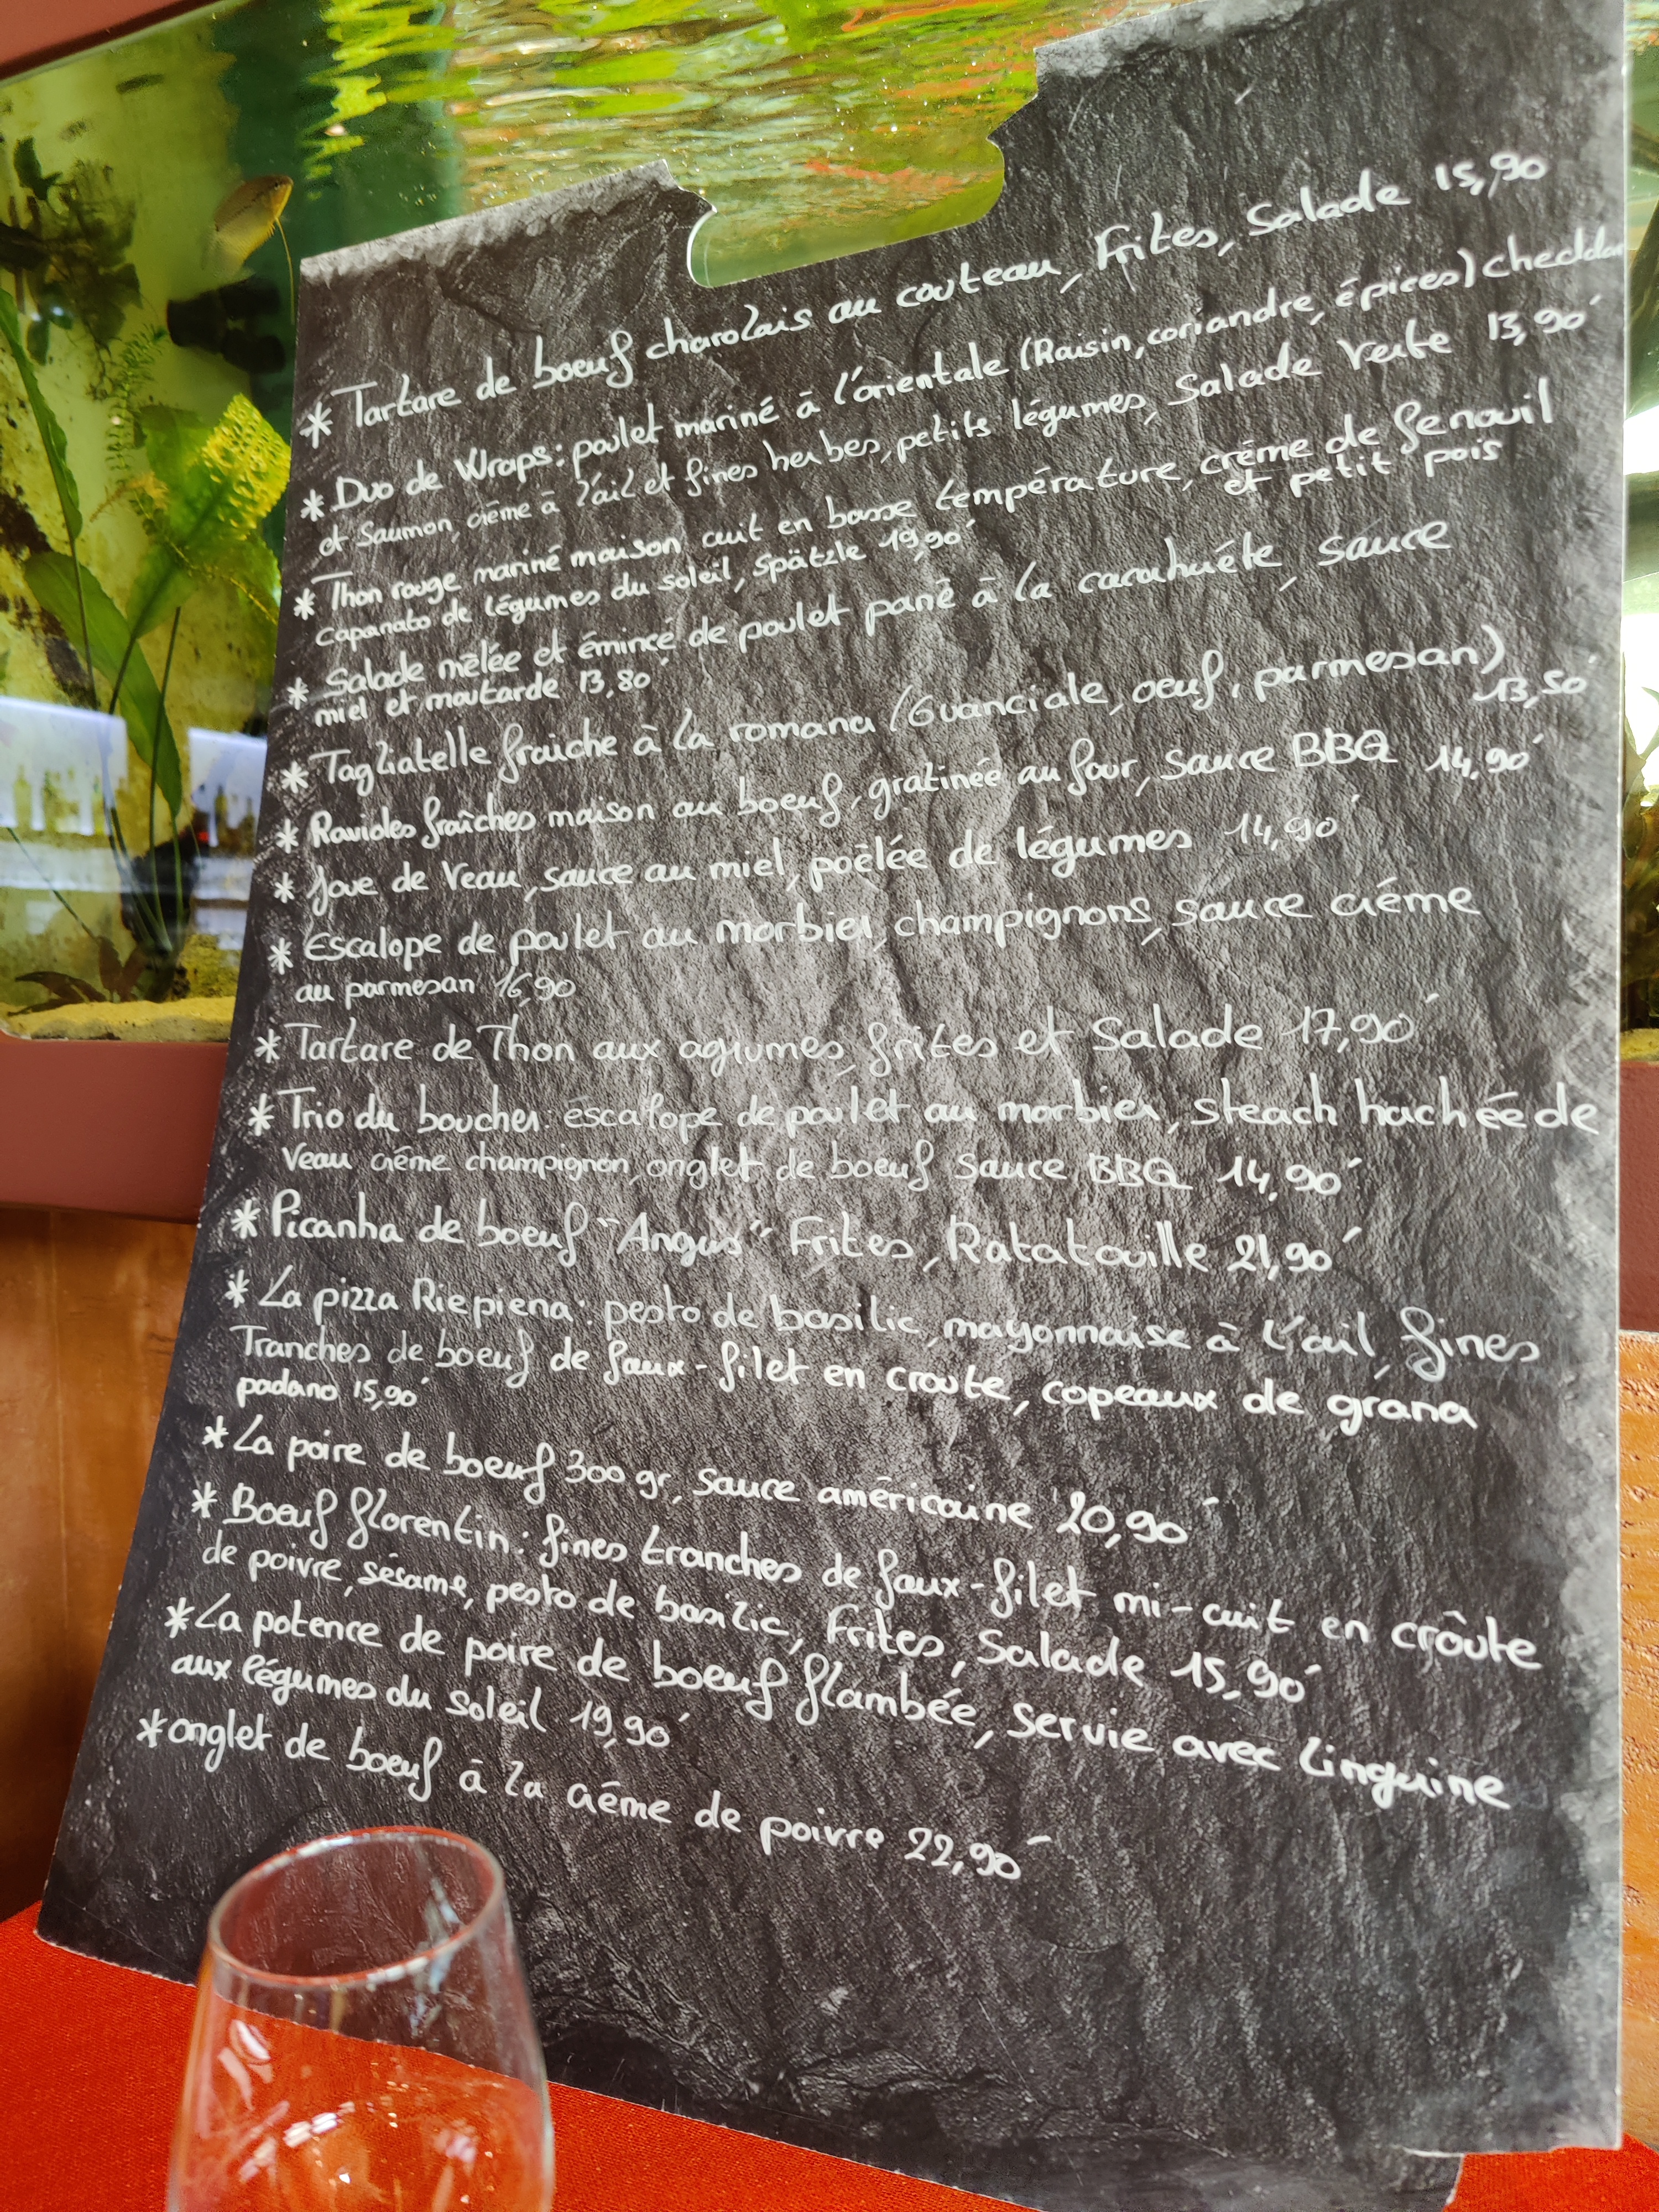 * Tartare de boeuf charolais au couteau, Frites, Salade 15,90
* Duo de Wraps: poulet mariné à l'orientale (Raisin, coriandre, épices) chedda
et Saumon, crème à l'ail et fines herbes, petits légumes, Salade Verte 13,90
* Thon rouge mariné maison cuit en basse température, crème de fenouil
et petit pois
caponato de légumes du soleil, spätzle 19,90
* Salade mêlée et émincé de poulet pané à la cacahuète, sauce
miel et moutarde 13,80
* Tagliatelle fraiche à la romana (Guanciale, oeuf, parmesan)
13,50
* Ravioles fraîches maison au boeuf, gratinée au four, sauce BBQ 14,90
* Joue de Veau, sauce au miel, poëlée de légumes 14,90
* Escalope de poulet au morbier, champignons, sauce crème
au parmesan 16,90
* Tartare de Thon aux agrumes, frites et Salade 17,90
* Trio du boucher: escalope de poulet au morbier, steach hachée de
Veau crème champignon, onglet de boeuf sauce BBQ 14,90
* Picanha de boeuf "Angus" Frites, Ratatouille 21,90
* La pizza Riepiena: pesto de basilic, mayonnaise à l'ail, fines
Tranches de boeuf de faux-filet en croute, copeaux de grana
padano 15,90
* La poire de boeuf 300 gr, sauce américaine 20,90
* Boeuf florentin: fines tranches de faux-filet mi-cuit en croûte
de poivre, sésame, pesto de basilic, Frites, Salade 15,90
* La potence de poire de boeuf flambée, servie avec linguine
aux légumes du soleil 19,90
* onglet de boeuf à la crème de poivre 22,90